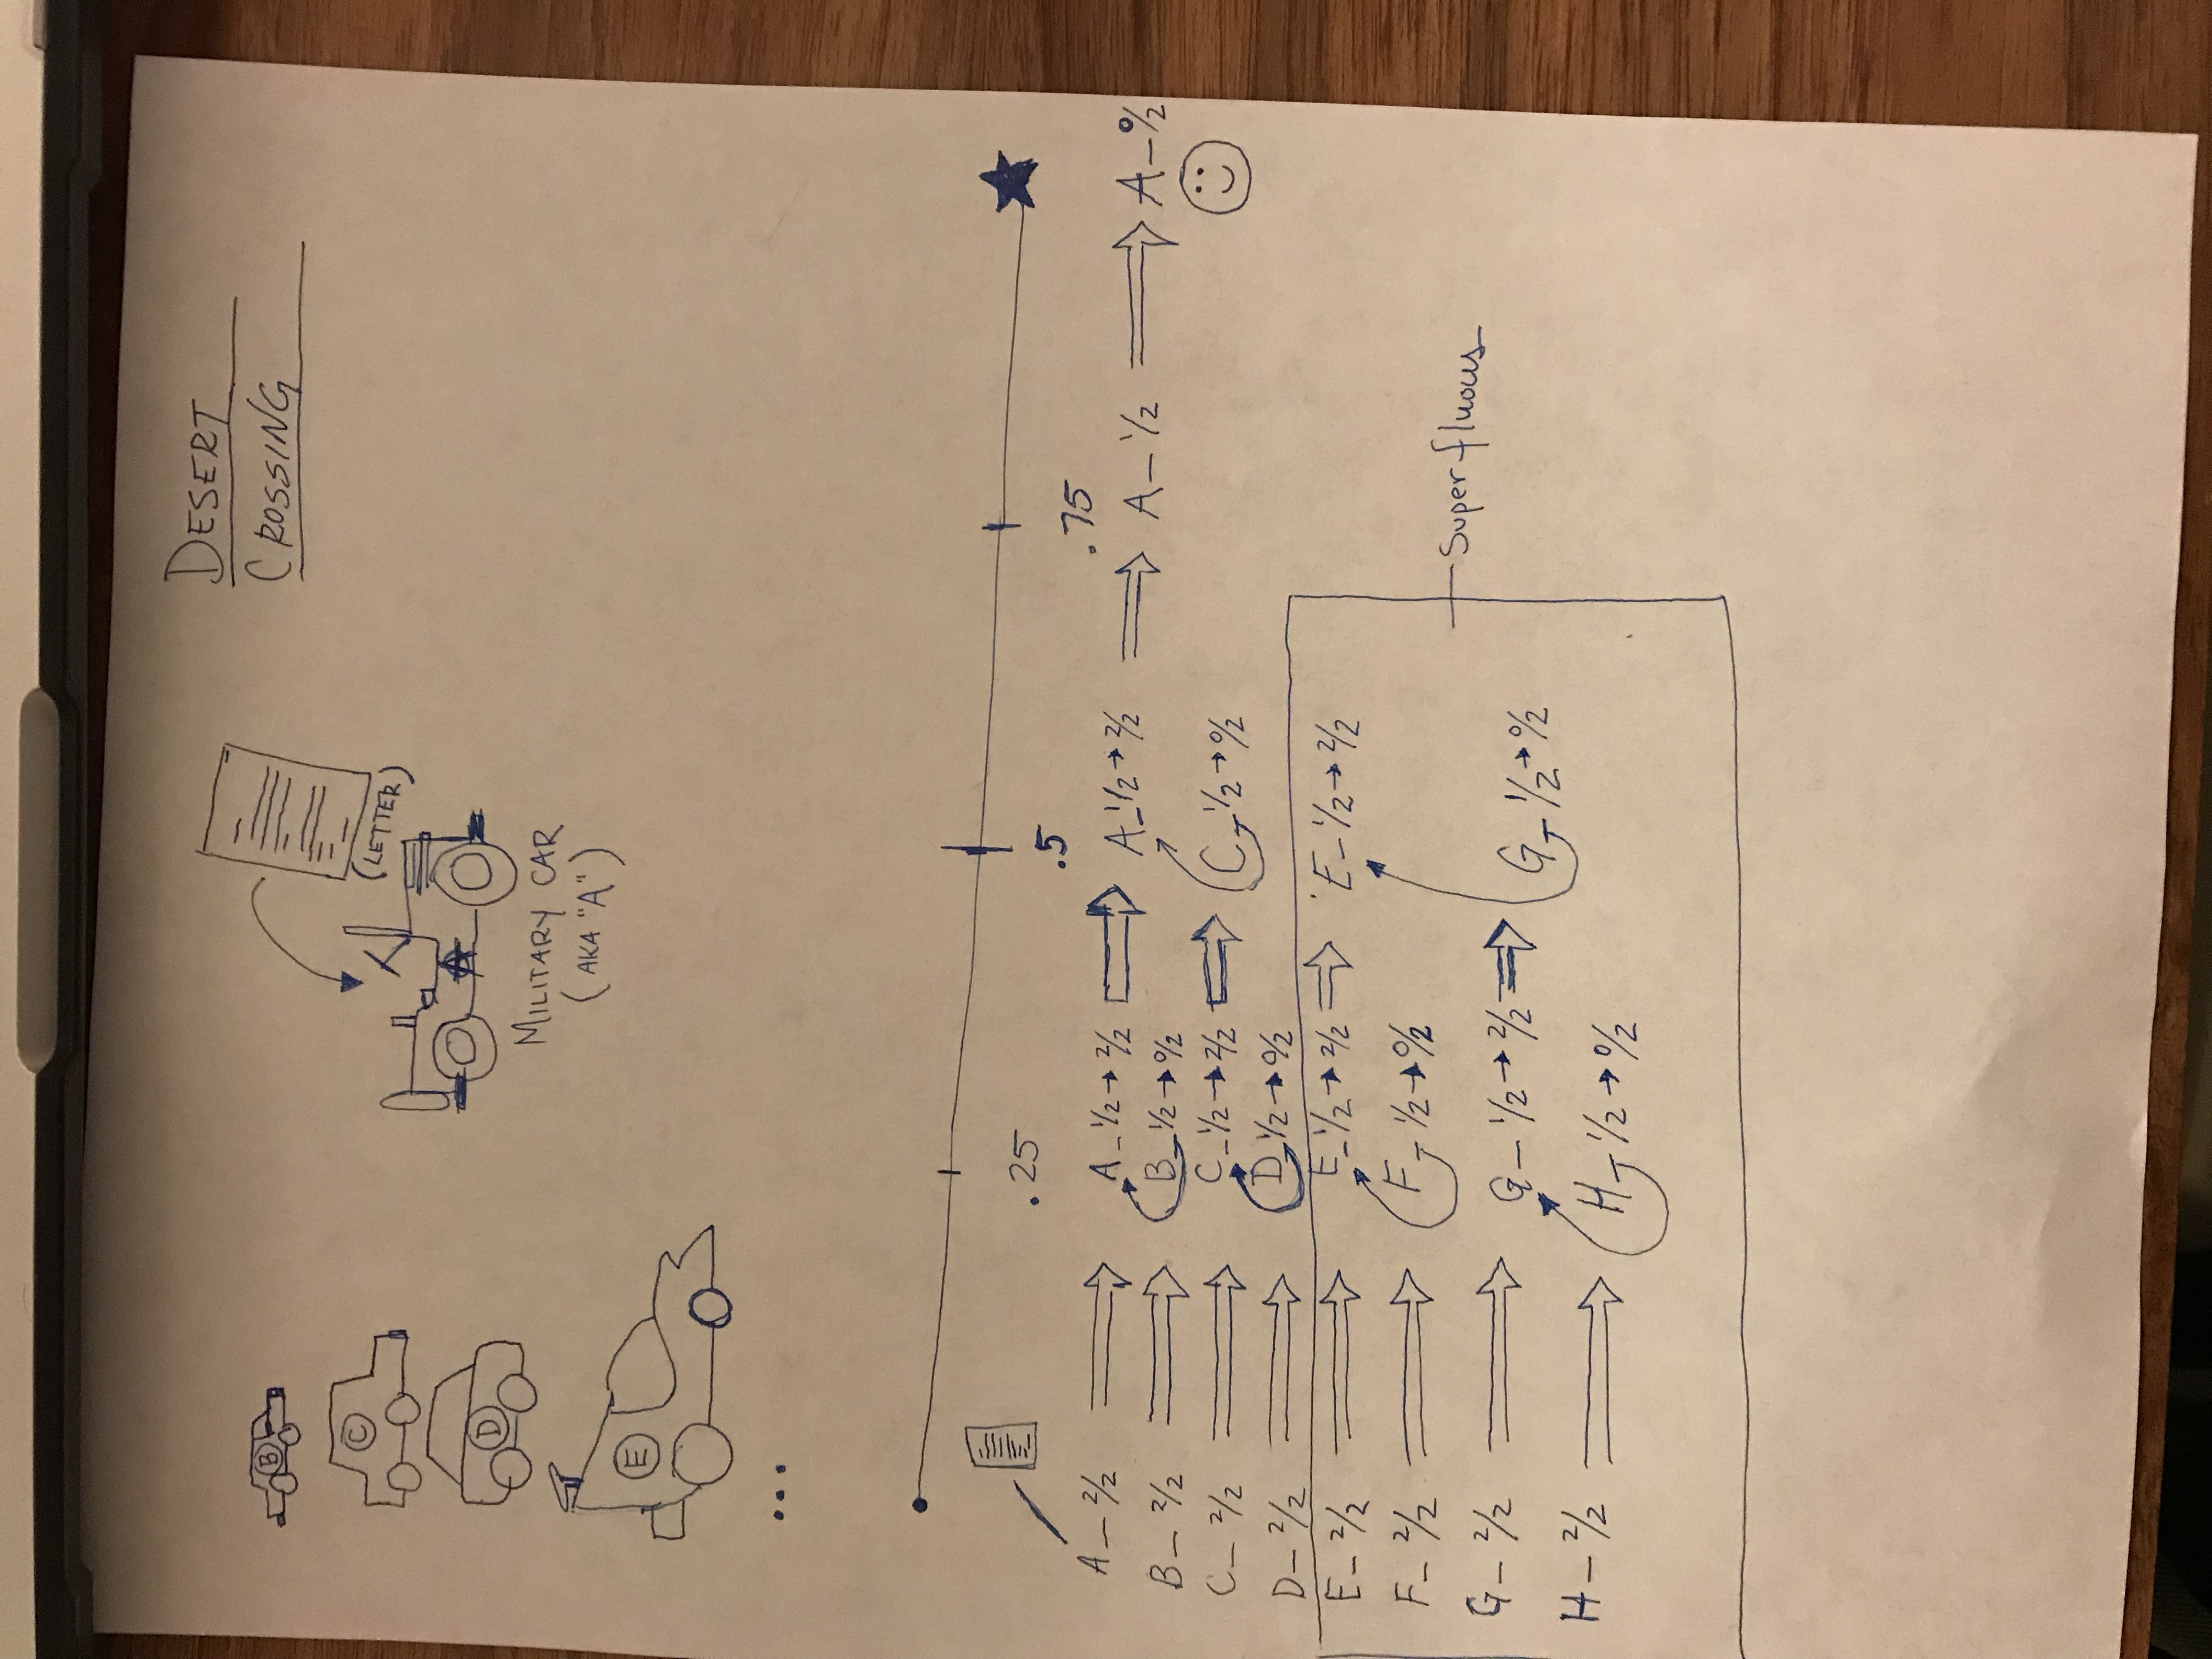 DESERT
CROSSING
B
C
D
E
...
(LETTER)
A
MILITARY CAR
(AKA "A")
.25
.5
.75
A - 2/2 ⇒ A - 1/2 → 2/2 ⇒ A - 1/2 → 2/2 ⇒ A - 1/2 ⇒ A - 0/2
B - 2/2 ⇒ B - 1/2 → 0/2
C - 2/2 ⇒ C - 1/2 → 2/2 ⇒ C - 1/2 → 0/2
D - 2/2 ⇒ D - 1/2 → 0/2
E - 2/2 ⇒ E - 1/2 → 2/2 ⇒ E - 1/2 → 2/2
F - 2/2 ⇒ F - 1/2 → 0/2
Superfluous
G - 2/2 ⇒ G - 1/2 → 2/2 ⇒ G - 1/2 → 0/2
H - 2/2 ⇒ H - 1/2 → 0/2